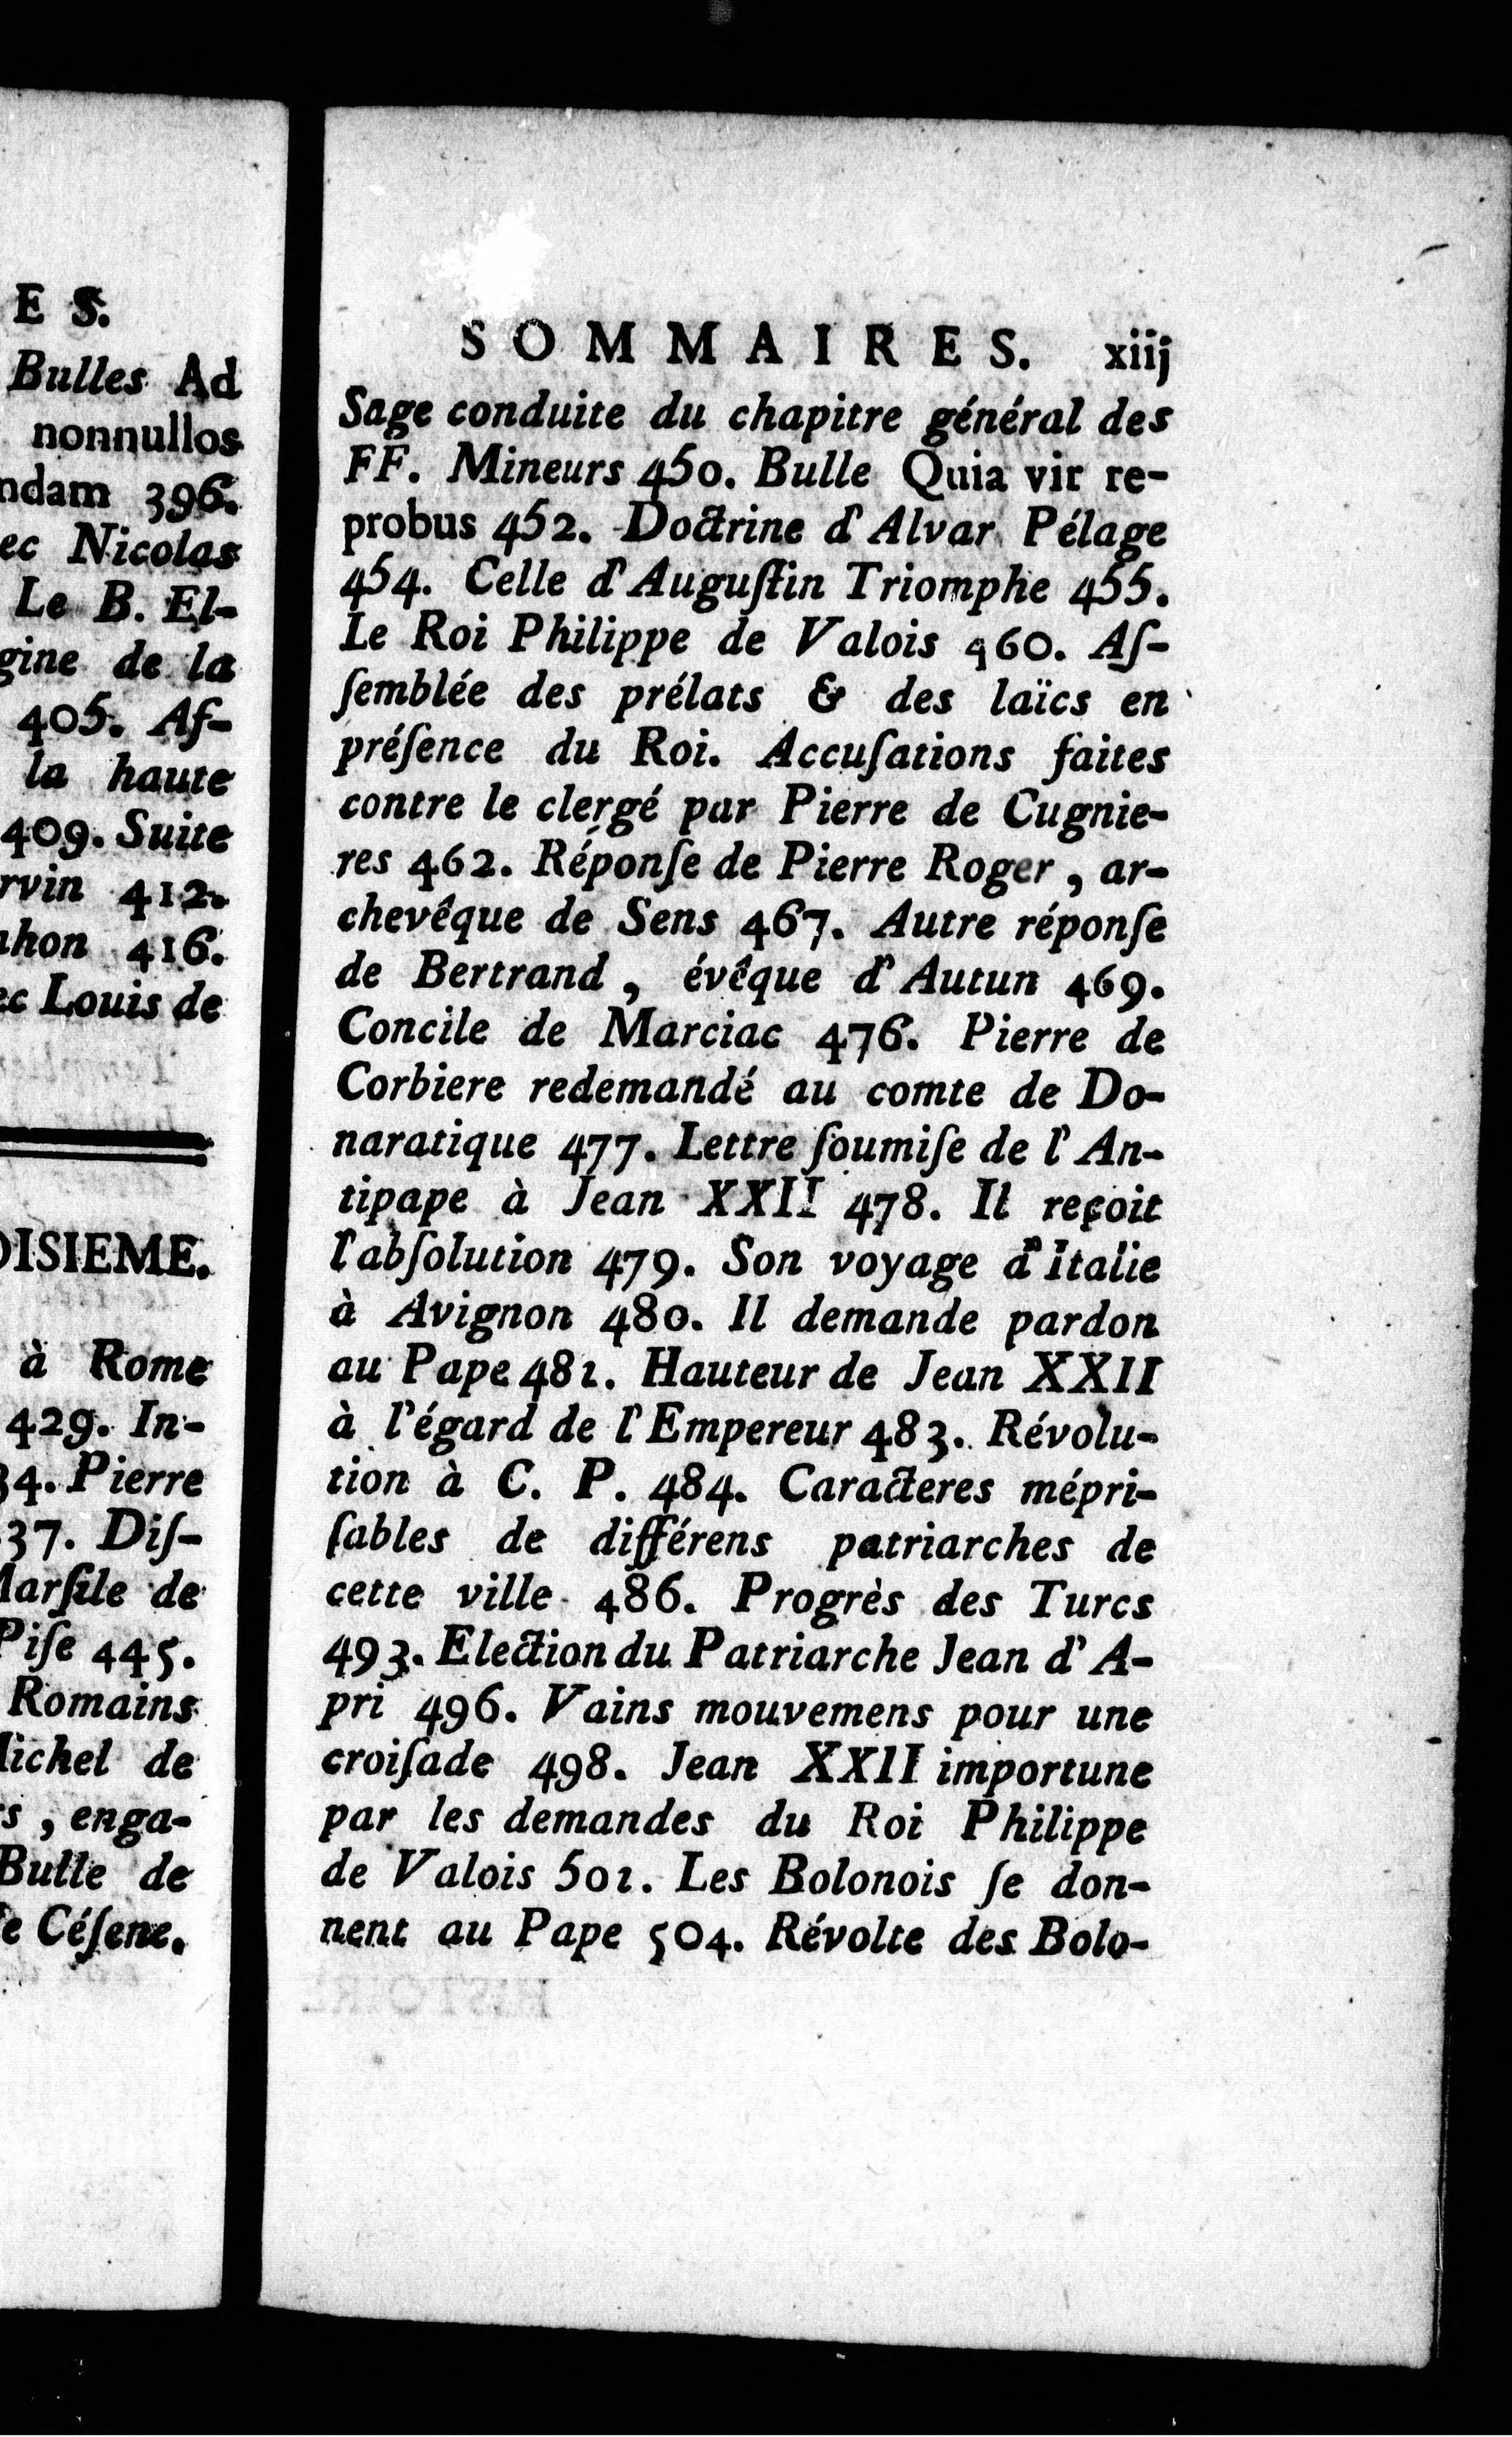 E S.
Bulles Ad
nonnullos
396.
Nicolas
Le B. El-
de la
405. Aſ-
la haute
409. Suite
412.
416.
Louis de
à Rome
429. In-
Pierre
Diſ-
de
445.
Romains
de
, enga-
Bulle de
Céſene.
SOMMAIRES. xiij
Sage conduite du chapitre général des
FF. Mineurs 450. Bulle Quia vir re-
probus 452. Doctrine d'Alvar Pélage
454. Celle d'Auguſtin Triomphe 455.
Le Roi Philippe de Valois 460. Aſ-
ſemblée des prélats & des laïcs en
préſence du Roi. Accuſations faites
contre le clergé par Pierre de Cugnie-
res 462. Réponſe de Pierre Roger, ar-
chevêque de Sens 467. Autre réponſe
de Bertrand, évêque d'Autun 469.
Concile de Marciac 476. Pierre de
Corbiere redemandé au comte de Do-
naratique 477. Lettre ſoumiſe de l'An-
tipape à Jean XXII 478. Il reçoit
l'abſolution 479. Son voyage d'Italie
à Avignon 480. Il demande pardon
au Pape 481. Hauteur de Jean XXII
à l'égard de l'Empereur 483. Révolu-
tion à C. P. 484. Caracteres mépri-
ſables de différens patriarches de
cette ville 486. Progrès des Turcs
493. Election du Patriarche Jean d'A-
pri 496. Vains mouvemens pour une
croiſade 498. Jean XXII importune
par les demandes du Roi Philippe
de Valois 501. Les Bolonois ſe don-
nent au Pape 504. Révolte des Bolo-